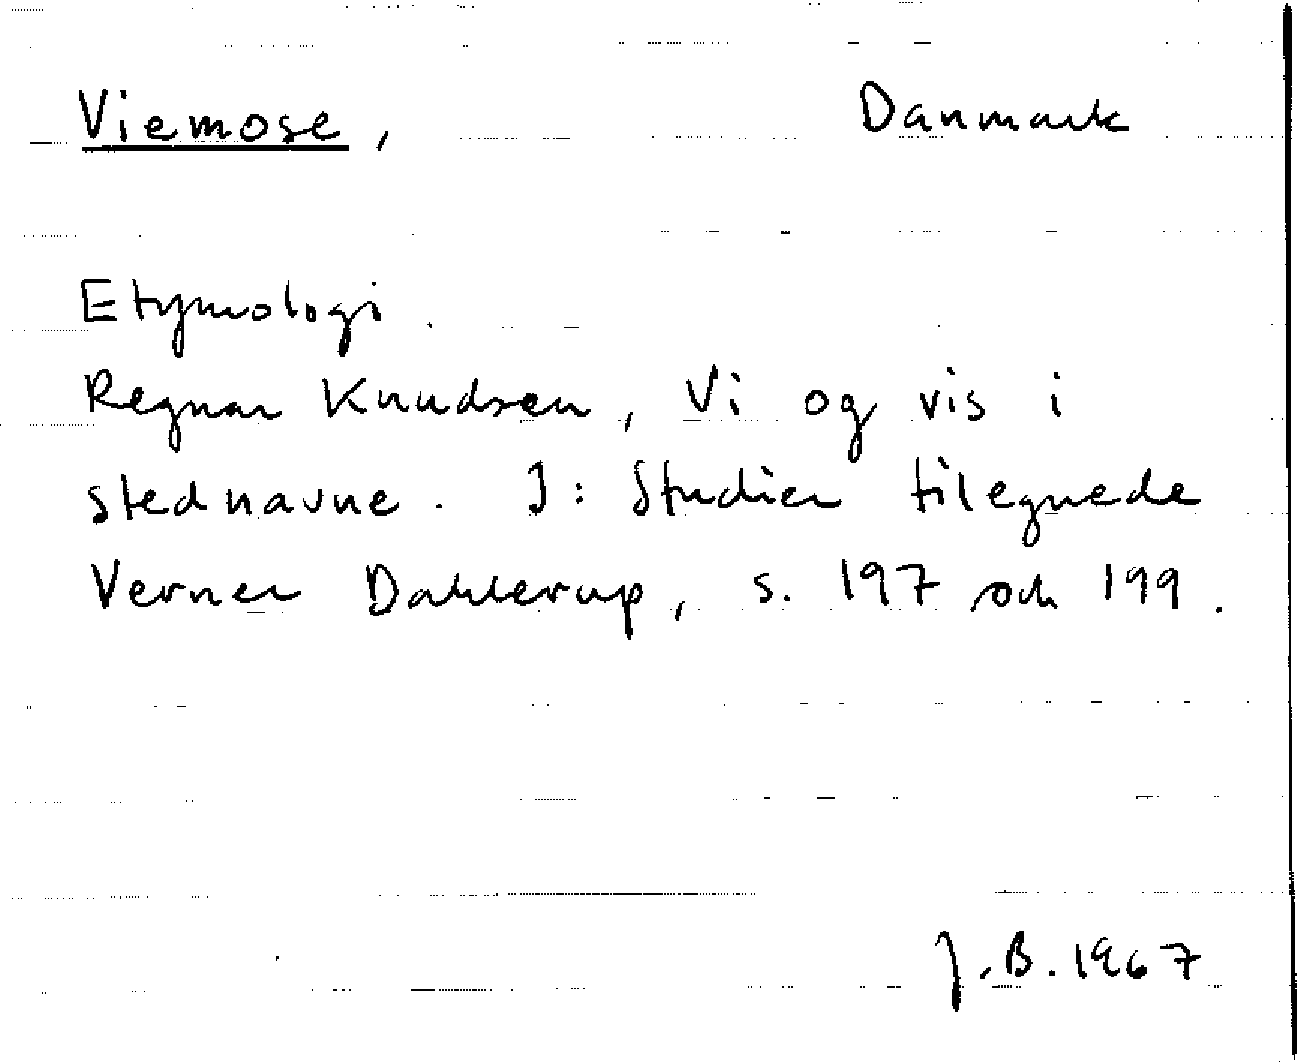 Viemose, Danmark
Etymologi.
Regnar Knudsen, Vi og vis i
stednavne. I: Studier tilegnede
Verner Dahlerup, s. 197 och 199.
J.B. 1967